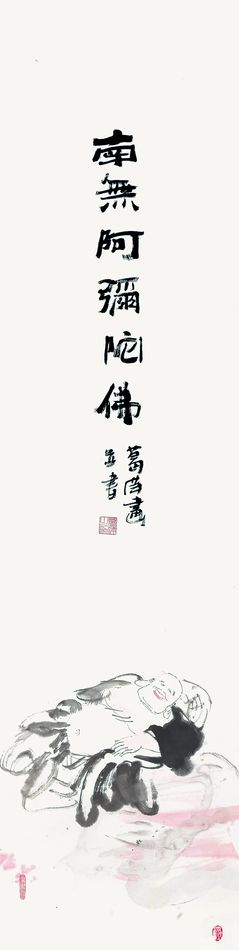 南無阿彌陀佛
葛茂畫
並書